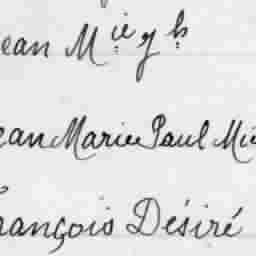 ean Mie yh
ean Marie Paul Mi
rançois Désiré